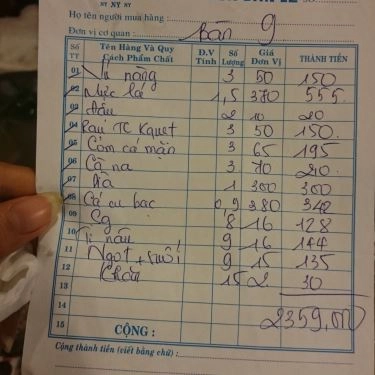 NY NY NY
Họ tên người mua hàng : Bàn 9
Đơn vị cơ quan :
Số TT Tên Hàng Và Quy Cách Phẩm Chất Đ.V Tính Số Lượng Giá Đơn Vị THÀNH TIỀN
01 nướng 3 50 150
02 Mực lá 1,5 370 555
03 Dấu 2 10 20
04 Rau TC Kquet 3 50 150
05 Cơm cá mặn 3 65 195
06 Cà na 3 70 210
07 Gà 1 300 300
08 Cá cu bạc 0,9 380 342
09 Cg 8 16 128
10 Ti nâu 9 16 144
11 Ngọt + suối 9 15 135
12 Khăn 15 2 30
13
14 2359,000
15 CỘNG :
Cộng thành tiền (viết bằng chữ) :